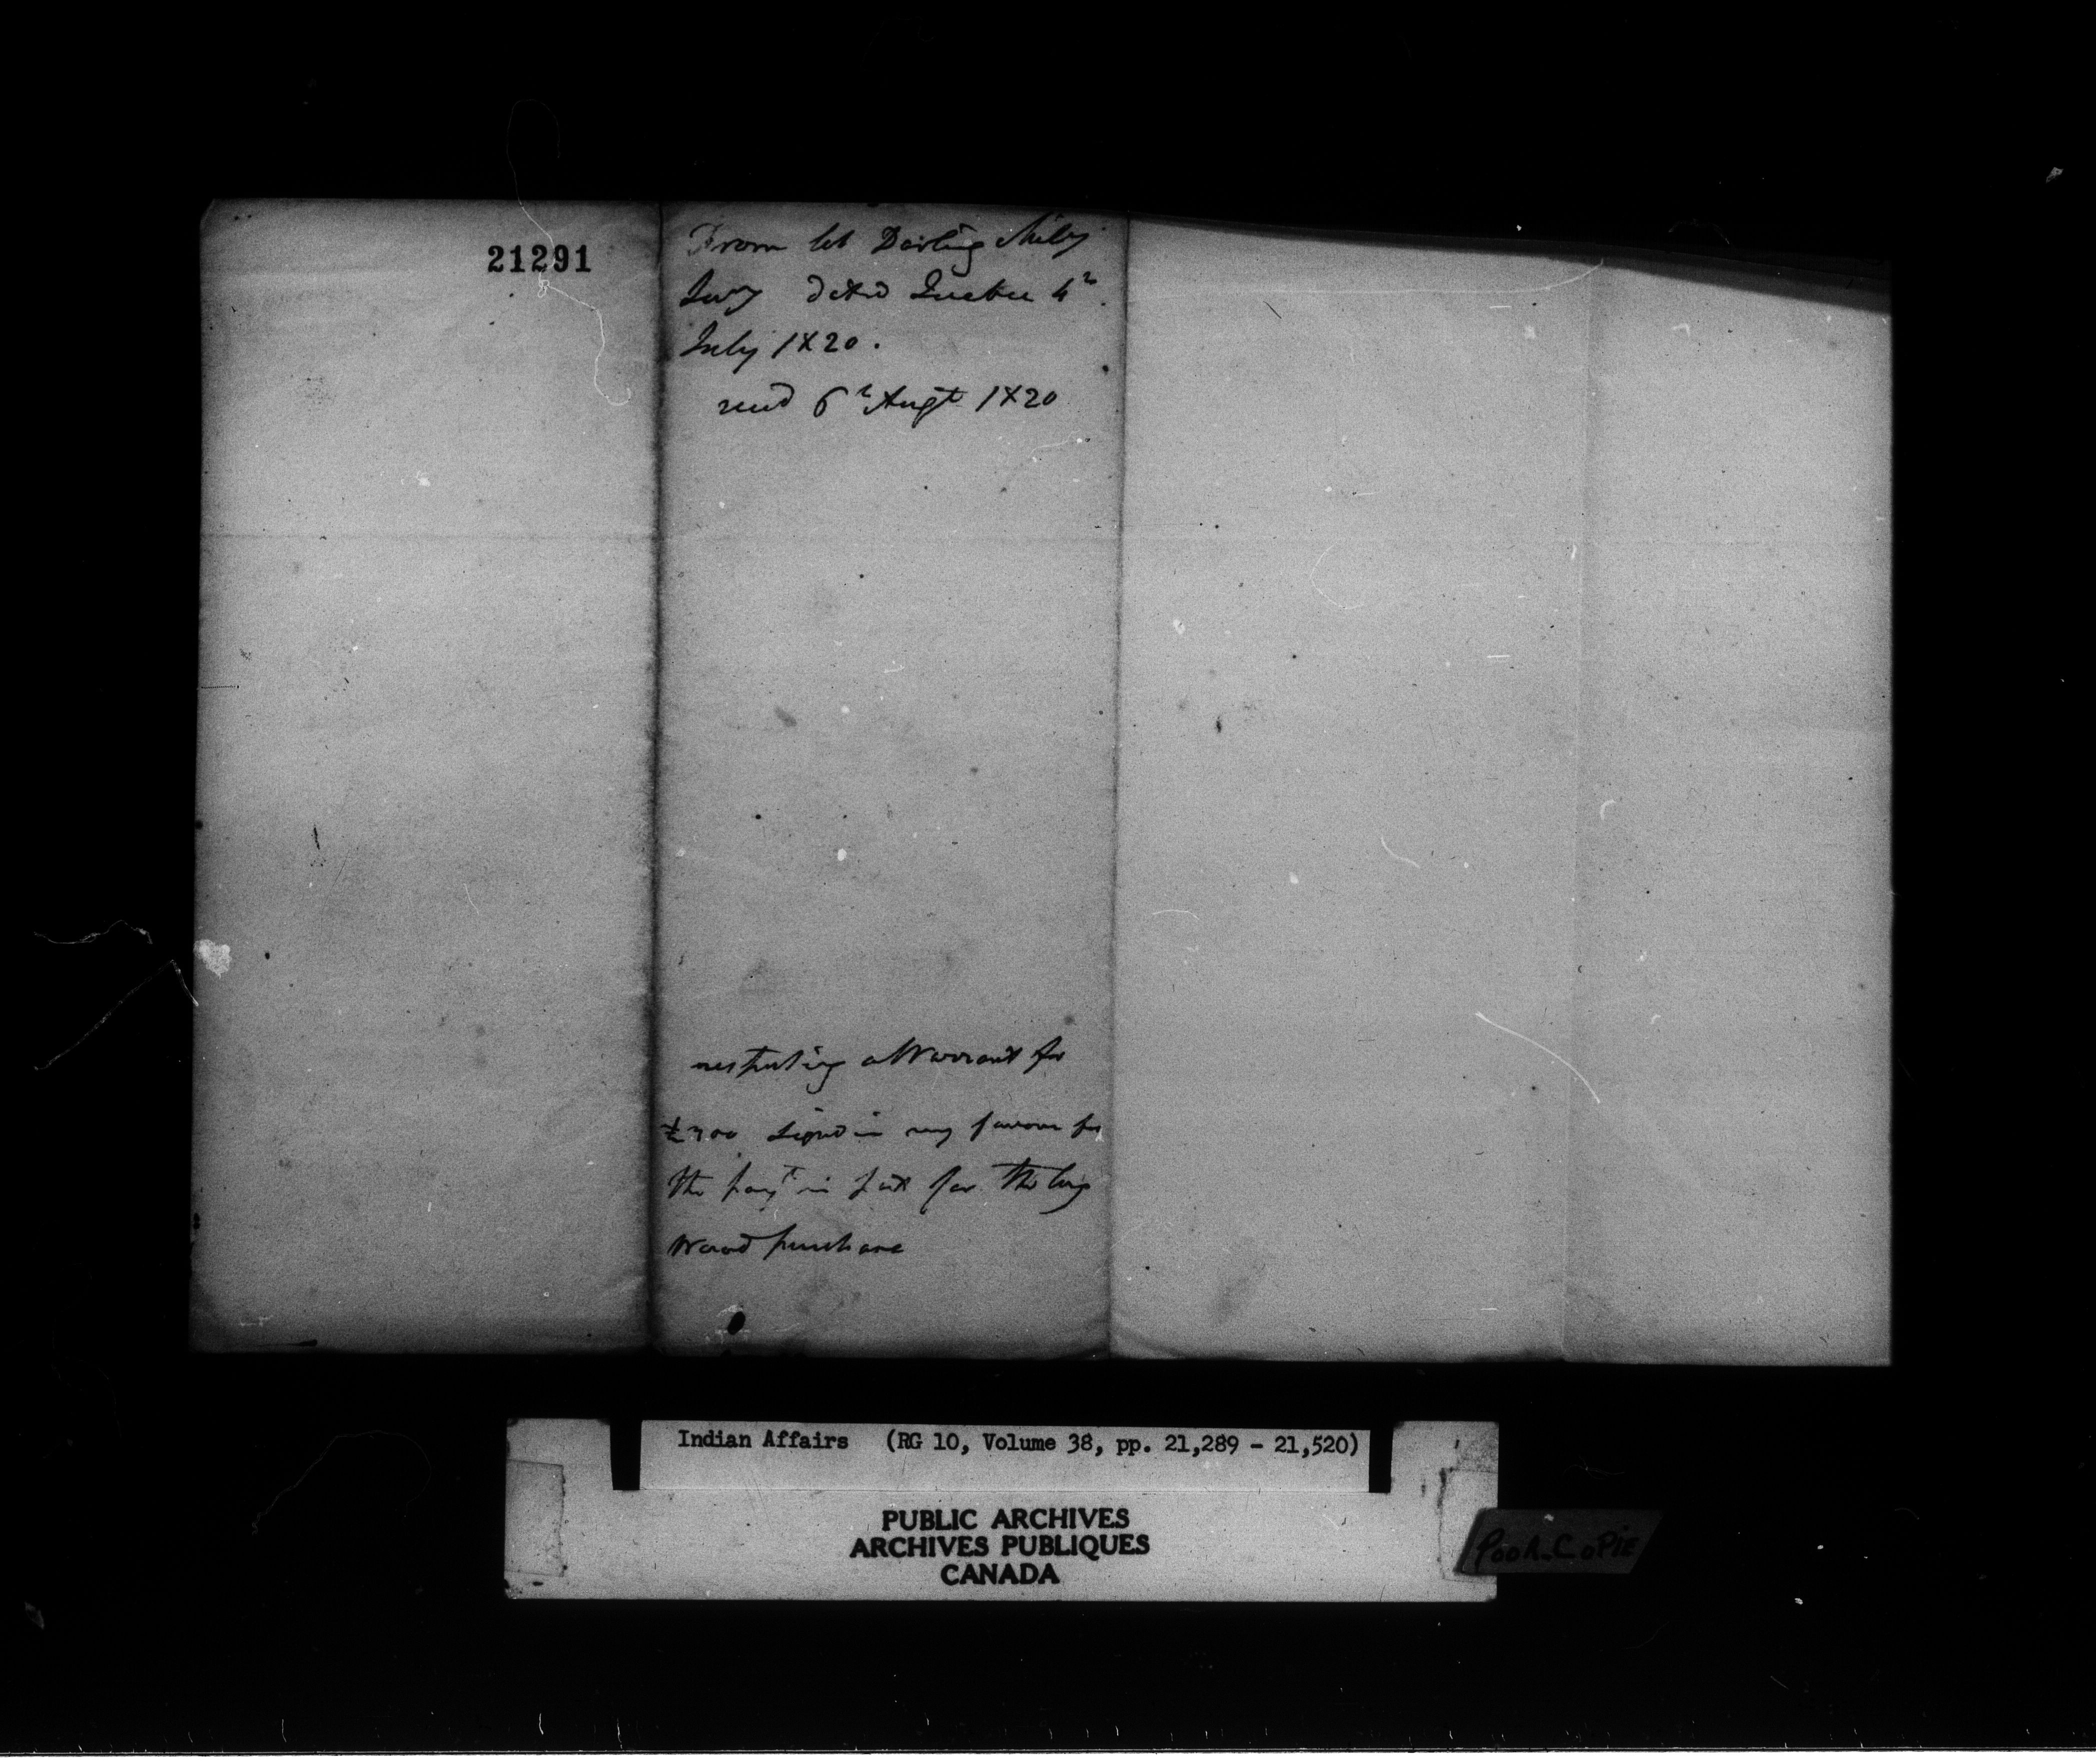 21291
From Col Darling Mily
Secy dated Quebec 4th
July 1820.
recd 6th Augt 1820
respecting a Warrant for
£700 signed in my favour for
the payt in part for the long
Wood purchase
Indian Affairs (RG 10, Volume 38, pp. 21,289 - 21,520)
PUBLIC ARCHIVES
ARCHIVES PUBLIQUES
CANADA
POOR COPIE